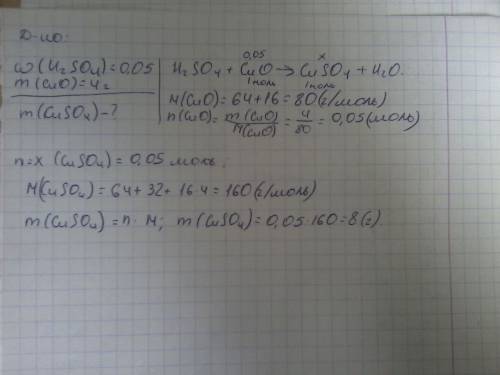 Д-но:
w(H₂SO₄)=0,05
m(CuO)=4г
m(CuSO₄)-?
0,05 x
H₂SO₄ + CuO → CuSO₄ + H₂O.
1моль 1моль
M(CuO)=64+16=80(г/моль)
n(CuO)= m(CuO)/M(CuO) = 4/80 = 0,05(моль)
n=x (CuSO₄)=0,05 моль;
M(CuSO₄)=64+32+16·4=160(г/моль)
m(CuSO₄)=n·M; m(CuSO₄)=0,05·160=8(г).